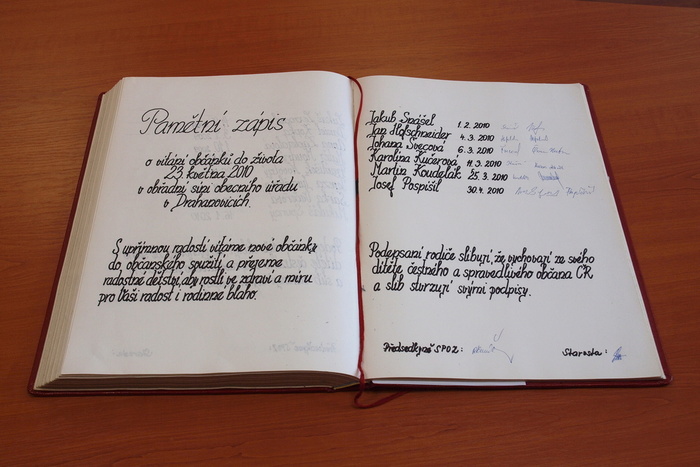 Pamětní zápis
o vítání občánků do života
23. května 2010
v obřadní síni obecního úřadu
v Drahanovicích.
S upřímnou radostí vítáme nové občánky
do občanského soužití a přejeme
radostné dětství, aby rostli ve zdraví a míru
pro Vaši radost i rodinné blaho.
Jakub Spášel 1. 2. 2010
Jan Hofschneider 4. 3. 2010
Johana Švecová 6. 3. 2010
Karolína Kučerová 11. 3. 2010
Martin Koudelák 25. 3. 2010
Josef Pospíšil 30. 4. 2010
Podepsaní rodiče slibují, že vychovají ze svého
dítěte, čestného a spravedlivého občana ČR
a slib stvrzují svými podpisy.
Předsedkyně SPOZ: Starosta: